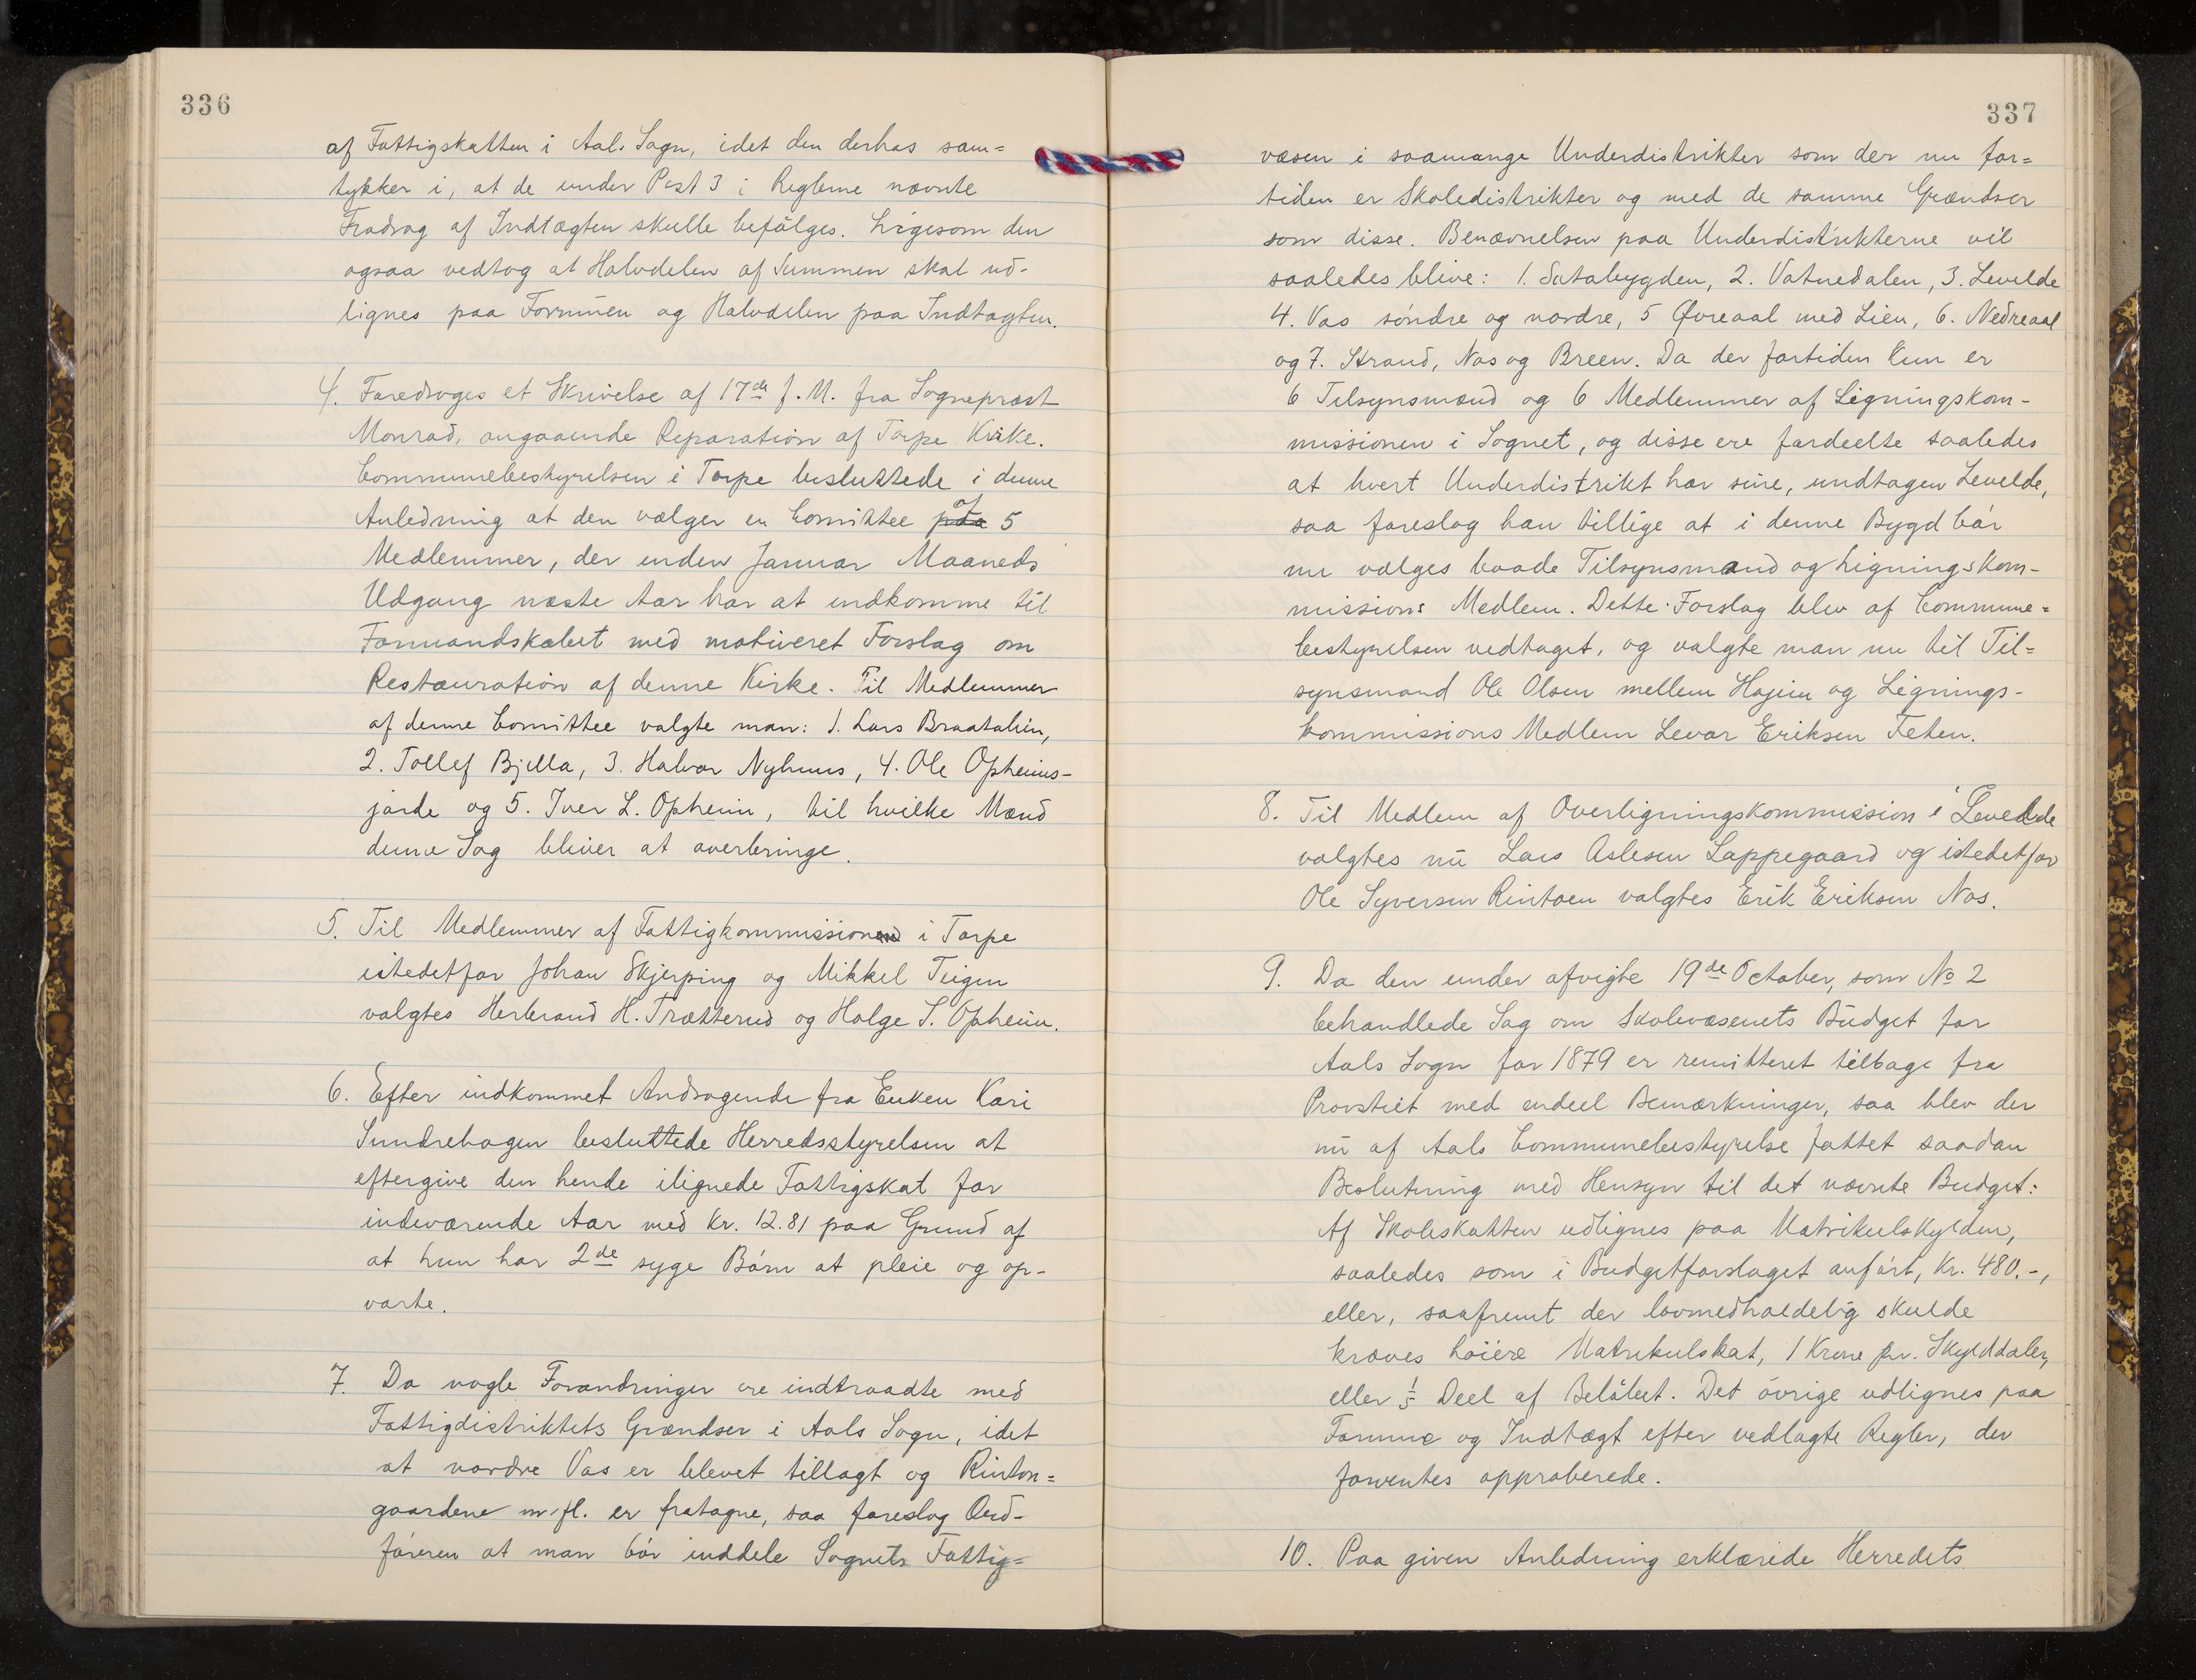 336
af Fattigskatten i Aal. Sogn, idet den derhos sam=
tykker i, at de under Post 3 i Reglerne nævnte
Fradrag af Indtægten skulle befølges. Ligesom den
ogsaa vedtog at Halvdelen af Summen skal ud-
lignes paa Formuen og Halvdelen paa Indtægten.
4. Foredroges et Skrivelse af 17de f. M. fra Sogneprest
Monrad, angaaende Reparation af Torpe Kirke.
Communebestyrelsen i Torpe besluttede i denne
Anledning at den vælger en Comittee paa af 5
Medlemmer, der inden Januar Maaneds
Udgang næste Aar har at indkomme til
Formandskabet med motiveret Forslag om
Restauration af denne Kirke. Til Medlemmer
af denne Comittee valgte man: 1. Lars Braatalien,
2. Tollef Bjella, 3. Halvor Nyhuus, 4. Ole Opheims-
jorde og 5. Iver L. Opheim, til hvilke Mænd
denne Sag bliver at overbringe.
5. Til Medlemmer af Fattigkommissionen i Torpe
istedetfor Johan Skjerping og Mikkel Teigen
valgtes Herbrand H. Trætterud og Holge S. Opheim.
6. Efter indkommet Andragende fra Enken Kari
Sundrehagen besluttede Herredsstyrelsen at
eftergive den hende ilignede Fattigskat for
indeværende Aar med Kr. 12.81 paa Grund af
at hun har 2de syge Børn at pleie og op-
varte.
7. Da nogle Forandringer ere indtraadte med
Fattigdistriktets Grændser i Aals Sogn, idet
at nordre Vas er blevet tillagt og Rinton=
gaardene m.fl. er fratagne, saa foreslog Ord-
føreren at man bør inddele Sognets Fattig=
337
væsen i saamange Underdistrikter som der nu for=
tiden er Skoledistrikter og med de samme Grændser
som disse. Benævnelsen paa Underdistrikterne vil
saaledes blive: 1. Satabygden, 2. Vatnedalen, 3. Levelde
4. Vas søndre og nordre, 5 Øvreaal med Lien, 6. Nedreaal
og 7. Strand, Nos og Breen. Da der fortiden kun er
6 Tilsynsmænd og 6 Medlemmer af Ligningskom-
missionen i Sognet, og disse ere fordeelte saaledes
at hvert Underdistrikt har sine, undtagen Levelde,
saa foreslog han tillige at i denne Bygd bør
nu vælges baade Tilsynsmand og Ligningskom-
missions Medlem. Dette Forslag blev af Commune=
bestyrelsen vedtaget, og valgte man nu til Til=
synsmand Ole Olsen mellem Hojem og Lignings-
Commissions Medlem Levor Eriksen Feten.
8. Til Medlem af Overligningskommission i Levelde
valgtes nu Lars Aslesen Lappegaard og istedetfor
Ole Syversen Rintoen valgtes Erik Eriksen Nos.
9. Da den under afvigte 19de October, som No 2
behandlede Sag om Skolevæsenets Budget for
Aals Sogn for 1879 er remitteret tilbage fra
Provstiet med endeel Bemærkninger, saa blev der
nu af Aals Communebestyrelse fattet saadan
Beslutning med Hensyn til det nævnte Budget:
Af Skoleskatten udlignes paa Matrikulskylden,
saaledes som i Budgetforslaget anført, Kr. 480.-,
eller, saafremt der lovmedholdelig skulde
kræves høiere Matrikulskat, 1 Krone pr. Skylddaler,
eller 1/5 Deel af Beløbet. Det øvrige udlignes paa
Formue og Indtægt efter vedlagte Regler, der
forventes approberede.
10. Paa given Anledning erklærede Herredets